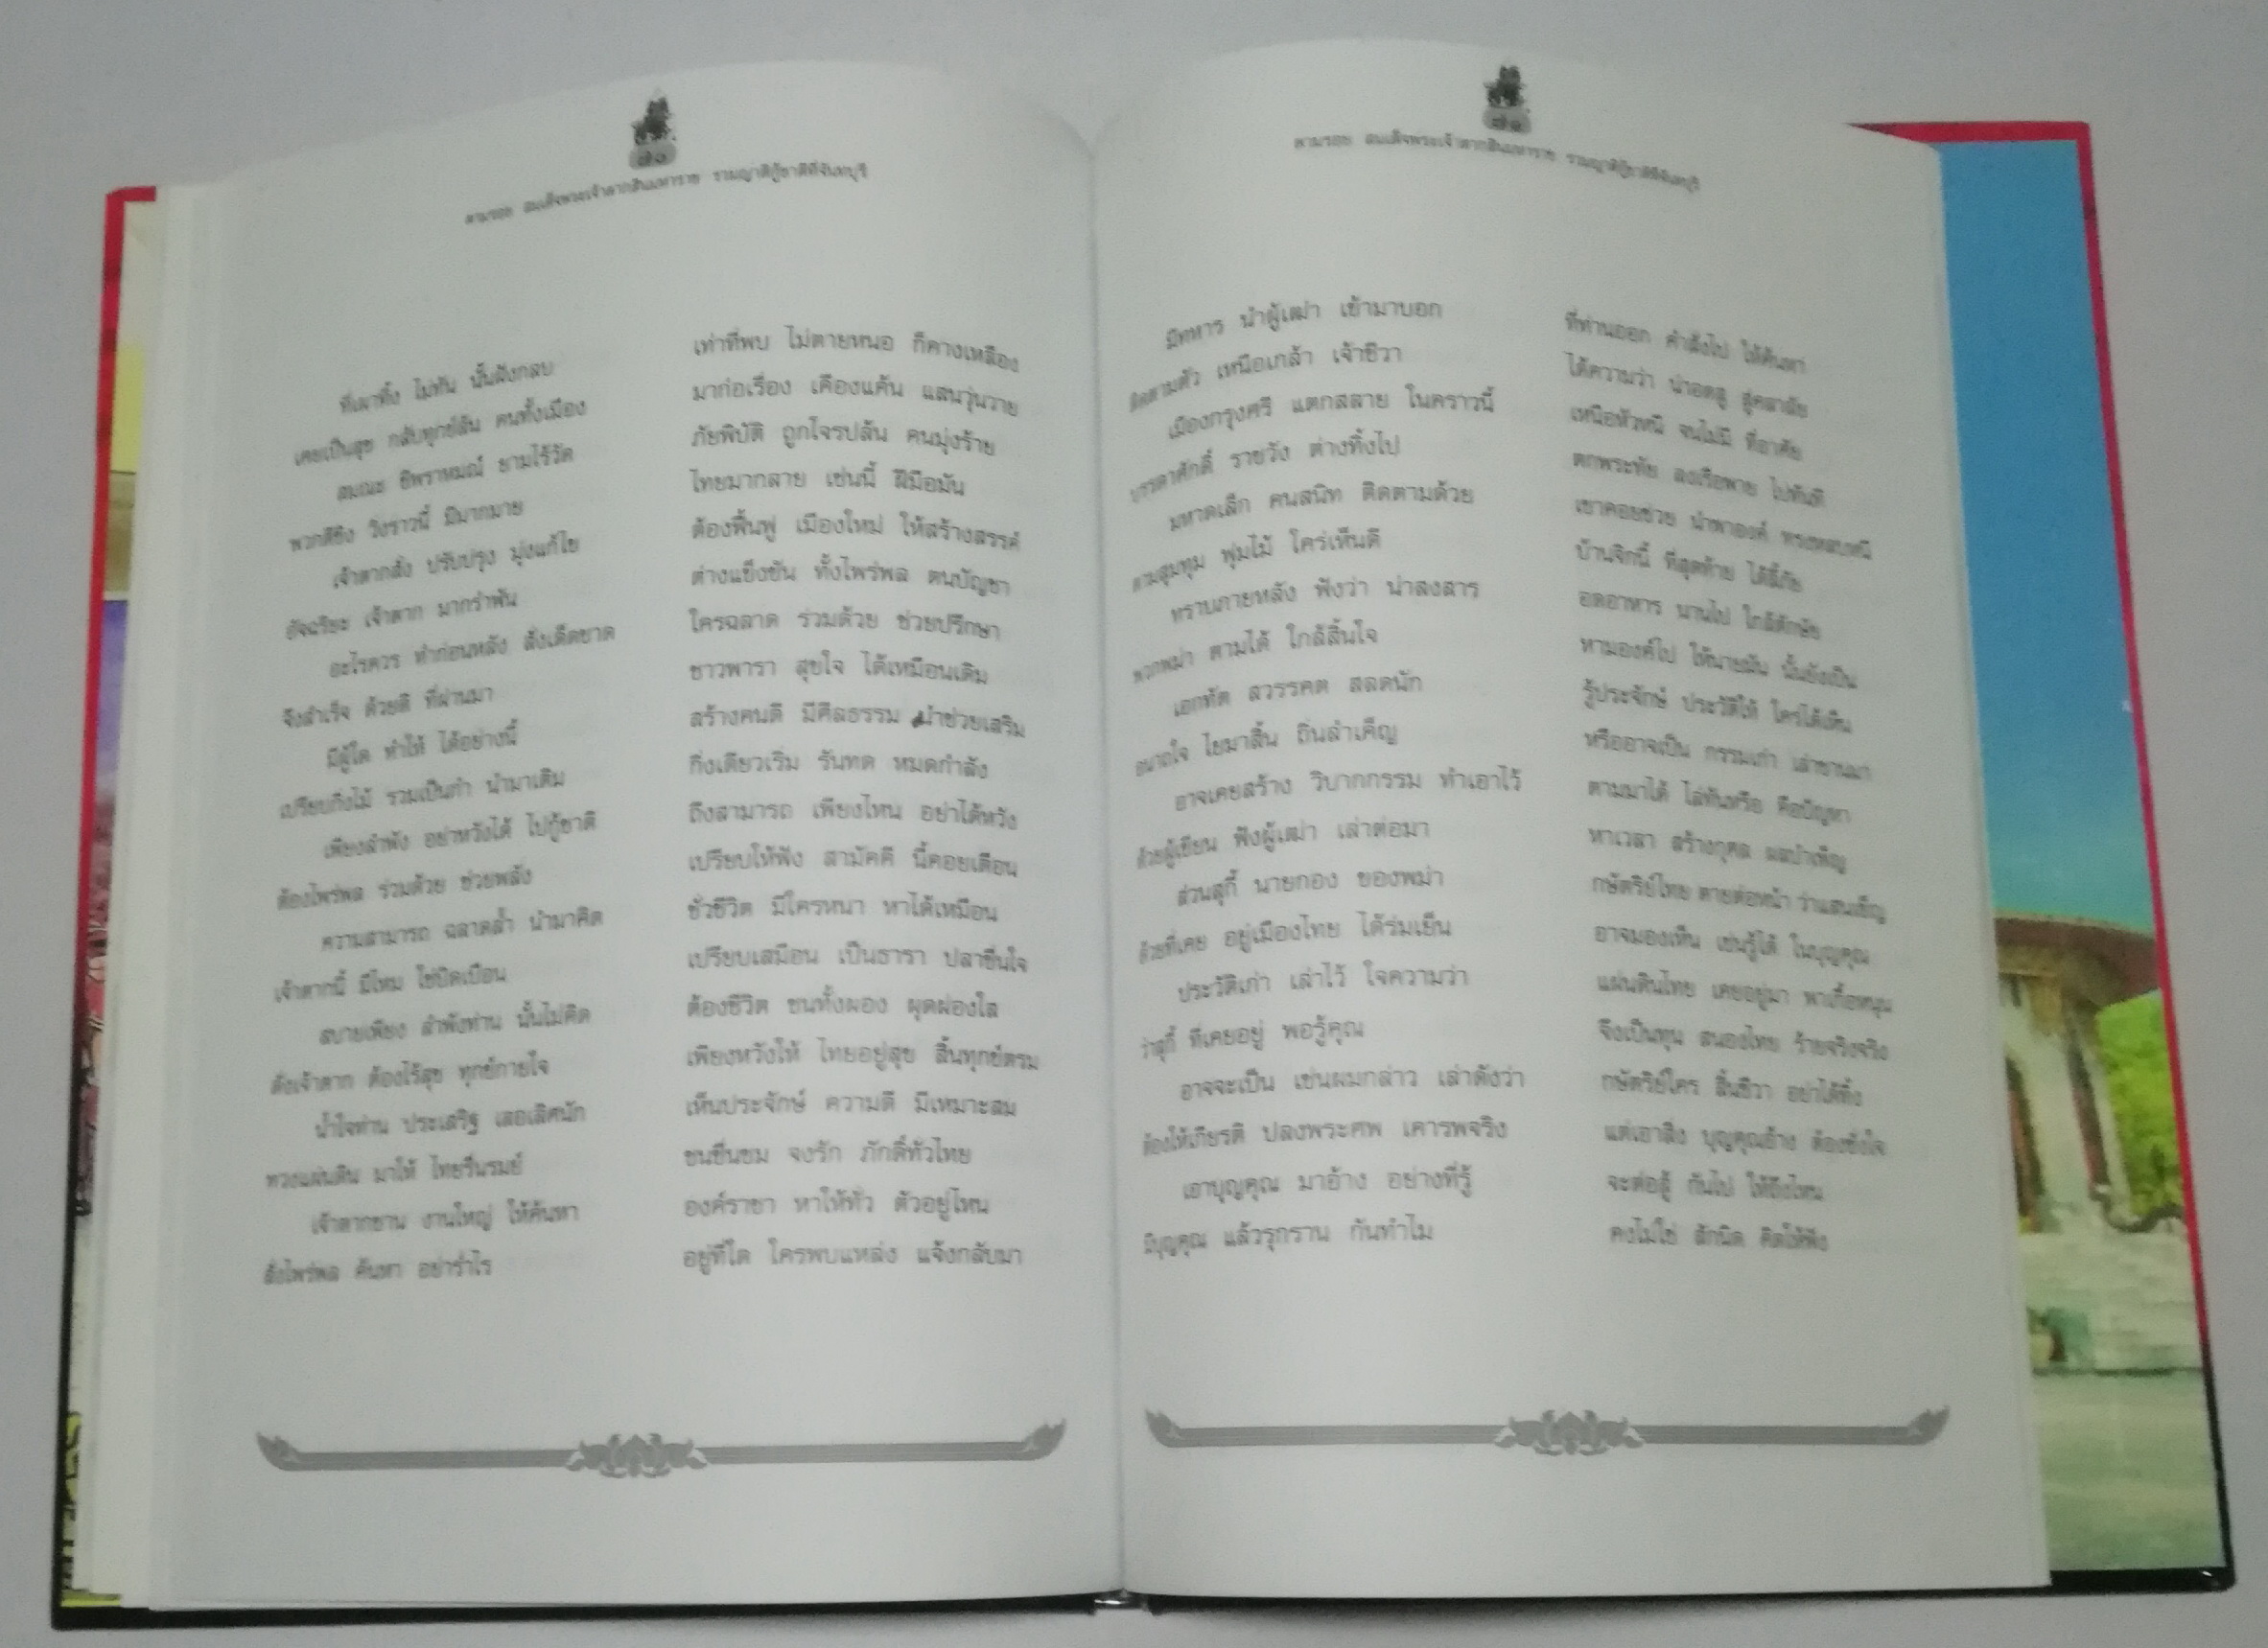 ๗๐
ตามรอย สมเด็จพระเจ้าตากสินมหาราช รวมญาติกู้ชาติที่จันทบุรี
ที่เผาทิ้ง ไม่ทัน นั้นฝังกลบ เท่าที่พบ ไม่ตายหนอ ก็คางเหลือง
เคยเป็นสุข กลับทุกข์ล้น คนทั้งเมือง มาก่อเรื่อง เคืองแค้น แสนวุ่นวาย
สมณะ ชีพราหมณ์ ยามไร้วัด ภัยพิบัติ ถูกโจรปล้น คนมุ่งร้าย
พวกตีชิง วิ่งราวนี้ มีมากมาย ไทยมากลาย เช่นนี้ ฝีมือมัน
เจ้าตากสั่ง ปรับปรุง มุ่งแก้ไข ต้องฟื้นฟู เมืองใหม่ ให้สร้างสรรค์
อัจฉริยะ เจ้าตาก มากรำพัน ต่างแข็งขัน ทั้งไพร่พล ตนบัญชา
อะไรควร ทำก่อนหลัง สั่งเด็ดขาด ใครฉลาด ร่วมด้วย ช่วยปรึกษา
จึงสำเร็จ ด้วยดี ที่ผ่านมา ชาวพารา สุขใจ ได้เหมือนเดิม
มีผู้ใด ทำให้ ได้อย่างนี้ สร้างคนดี มีศีลธรรม นำช่วยเสริม
เปรียบกิ่งไม้ รวมเป็นกำ นำมาเติม กิ่งเดียวเริ่ม รันทด หมดกำลัง
เพียงลำพัง อย่าหวังได้ ไปกู้ชาติ ถึงสามารถ เพียงไหน อย่าได้หวัง
ต้องไพร่พล ร่วมด้วย ช่วยพลัง เปรียบให้ฟัง สามัคคี นี้คอยเตือน
ความสามารถ ฉลาดล้ำ นำมาคิด ชั่วชีวิต มีใครหนา หาได้เหมือน
เจ้าตากนี้ มีไหม ใช่บิดเบือน เปรียบเสมือน เป็นธารา ปลาชื่นใจ
สบายเพียง ลำพังท่าน นั้นไม่คิด ต้องชีวิต ชนทั้งผอง ผุดผ่องใส
ดั่งเจ้าตาก ต้องไร้สุข ทุกข์กายใจ เพียงหวังให้ ไทยอยู่สุข สิ้นทุกข์ตรม
น้ำใจท่าน ประเสริฐ เลอเลิศนัก เห็นประจักษ์ ความดี มีเหมาะสม
ทวงแผ่นดิน มาให้ ไทยรื่นรมย์ ชนชื่นชม จงรัก ภักดิ์ทั่วไทย
เจ้าตากขาน งานใหญ่ ให้ค้นหา องค์ราชา หาให้ทั่ว ตัวอยู่ไหน
สั่งไพร่พล ค้นหา อย่าร่ำไร อยู่ที่ใด ใครพบแหล่ง แจ้งกลับมา
๗๑
ตามรอย สมเด็จพระเจ้าตากสินมหาราช รวมญาติกู้ชาติที่จันทบุรี
มีทหาร นำผู้เฒ่า เข้ามาบอก ที่ท่านออก คำสั่งไป ให้ค้นหา
ติดตามตัว เหนือเกล้า เจ้าชีวา ได้ความว่า น่าอดสู สู่คลาลัย
เมืองกรุงศรี แตกสลาย ในคราวนี้ เหนือหัวหนี จนไม่มี ที่อาศัย
บรรดาศักดิ์ ราชวัง ต่างทิ้งไป ตกพระทัย ลงเรือพาย ไปทันที
มหาดเล็ก คนสนิท ติดตามด้วย เขาคอยช่วย นำพาองค์ ทรงหลบหนี
ตามสุมทุม พุ่มไม้ ใคร่เห็นดี บ้านจิกนี้ ที่สุดท้าย ได้ลี้ภัย
ทราบภายหลัง ฟังว่า น่าสงสาร อดอาหาร นานไป ใกล้ตักษัย
พวกพม่า ตามได้ ใกล้สิ้นใจ หามองค์ไป ให้นายมัน นั้นยังเป็น
เอกทัต สวรรคต สลดนัก รู้ประจักษ์ ประวัติให้ ใครได้เห็น
อนาถใจ ไยมาสิ้น ถิ่นลำเค็ญ หรืออาจเป็น กรรมเก่า เล่าขานมา
อาจเคยสร้าง วิบากกรรม ทำเอาไว้ ตามมาได้ ไล่ทันหรือ คือปัญหา
ด้วยผู้เขียน ฟังผู้เฒ่า เล่าต่อมา หาเวลา สร้างกุศล ผลบำเพ็ญ
ส่วนสุกี้ นายกอง ของพม่า กษัตริย์ไทย ตายต่อหน้า ว่าแสนเข็ญ
ด้วยที่เคย อยู่เมืองไทย ได้ร่มเย็น อาจมองเห็น เช่นรู้ได้ ในบุญคุณ
ประวัติเก่า เล่าไว้ ใจความว่า แผ่นดินไทย เคยอยู่มา พาเกื้อหนุน
ว่าสุกี้ ที่เคยอยู่ พอรู้คุณ จึงเป็นทุน สนองไทย ร้ายจริงจริง
อาจจะเป็น เช่นผมกล่าว เล่าดังว่า กษัตริย์ใคร สิ้นชีวา อย่าได้ทิ้ง
ต้องให้เกียรติ ปลงพระศพ เคารพจริง แต่เอาสิ่ง บุญคุณอ้าง ต้องชั่งใจ
เอาบุญคุณ มาอ้าง อย่างที่รู้ จะต่อสู้ กันไป ให้ถึงไหน
มีบุญคุณ แล้วรุกราน กันทำไม คงไม่ใช่ สักนิด คิดให้ฟัง